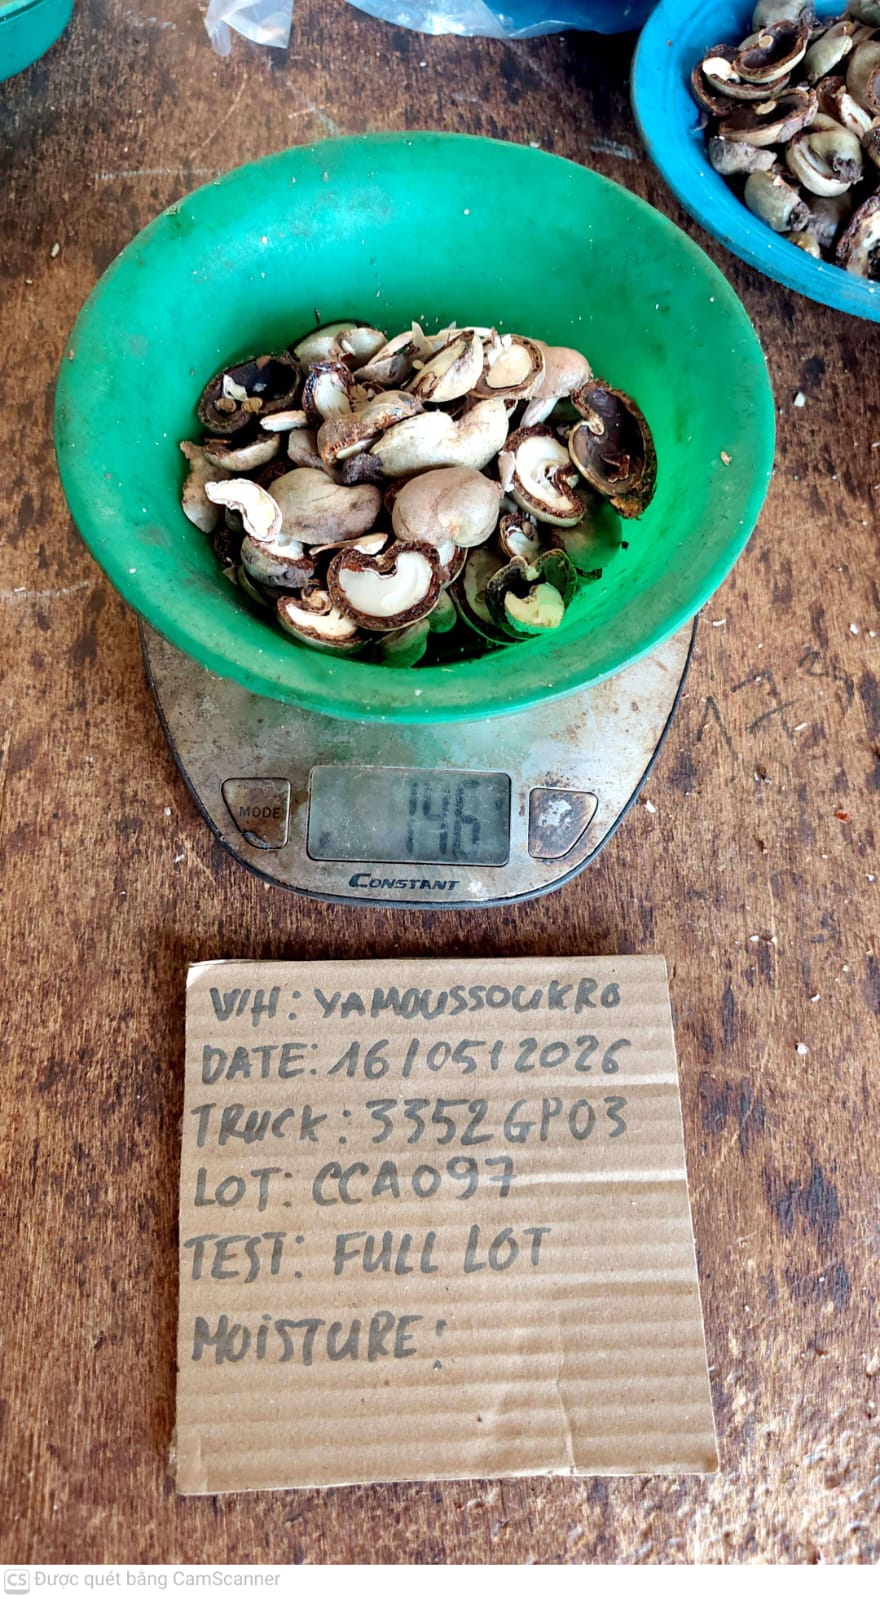 MODE
146
CONSTANT
W/H: YAMOUSSOUKRO
DATE: 16/05/2026
TRUCK: 3352GP03
LOT: CCA097
TEST: FULL LOT
MOISTURE:
CS Được quét bằng CamScanner